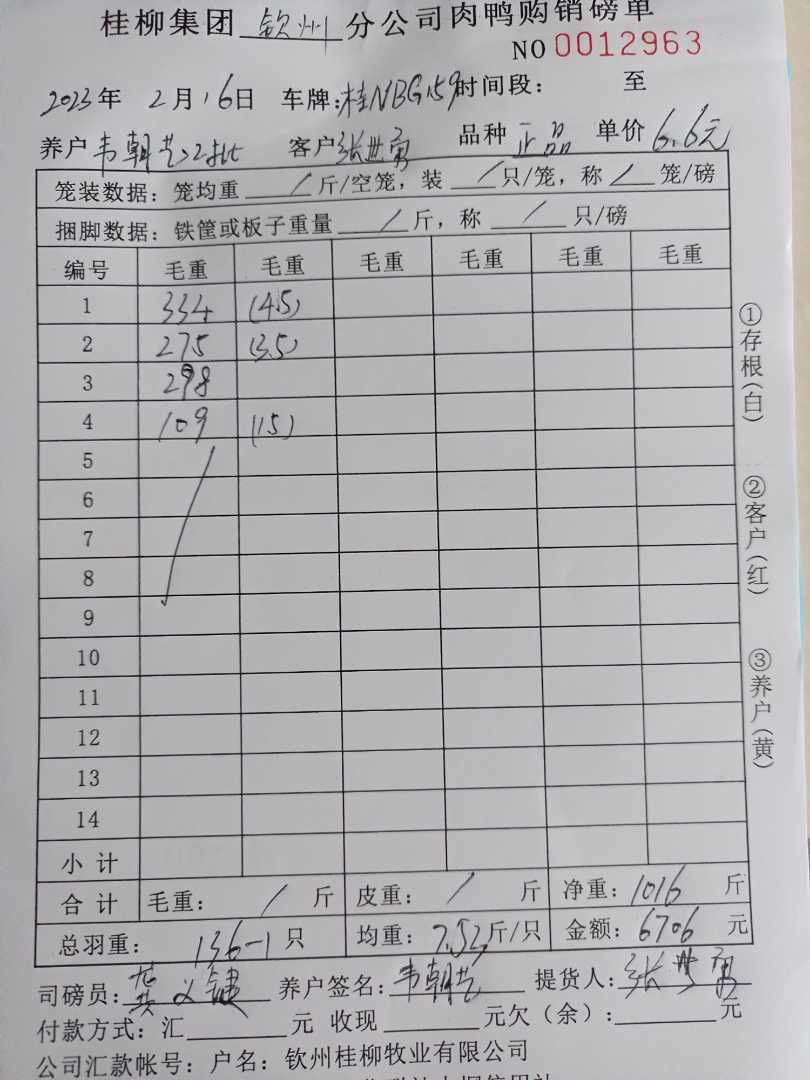 桂柳集团 钦州 分公司肉鸭购销磅单
NO 0012963
2023年 2月16日 车牌:桂NBG159 时间段: 至
养户 韦朝艺 客户 张世勇 品种 正品 单价 6.6元
笼装数据: 笼均重 / 斤/空笼, 装 / 只/笼, 称 / 笼/磅
捆脚数据: 铁筐或板子重量 / 斤, 称 / 只/磅
编号 毛重 毛重 毛重 毛重 毛重 毛重
1 334 (45)
2 275 (35)
3 298
4 109 (15)
5
6
7
8
9
10
11
12
13
14
小 计
合 计 毛重: / 斤 皮重: / 斤 净重: 1016 斤
总羽重: 136-1 只 均重: 7.53斤/只 金额: 6706 元
司磅员: 莫义键 养户签名: 韦朝艺 提货人: 张世勇
付款方式: 汇 元 收现 元欠(余): 元
公司汇款帐号: 户名: 钦州桂柳牧业有限公司
①存根(白)
②客户(红)
③养户(黄)